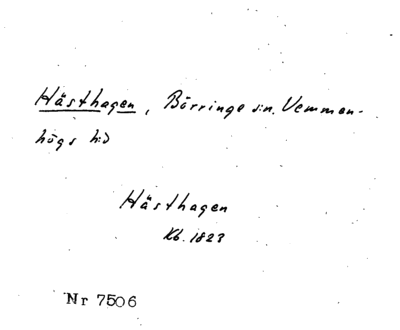 Hästhagen, Börringe s:n. Vemmen-
högs h:d
Hästhagen
Kb. 1823
Nr 7506